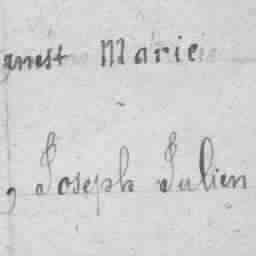 anest Marie
, Joseph Julien